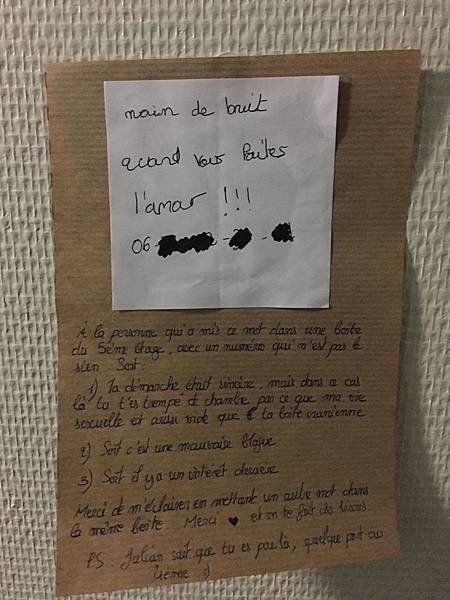 moin de bruit
quand vous faites
l'amar !!!
06
À la personne qui a mis ce mot dans une boîte
du 5ème étage, avec un numéro qui n'est pas le
sien. Soit :
1) Ta démarche était sincère, mais dans ce cas
là tu t'es trompé de chambre par ce que ma vie
sexuelle est aussi vide que ta boîte crânienne
2) Soit c'est une mauvaise blague
3) Soit il y a un intérêt derrière
Merci de m'éclairer en mettant un autre mot dans
la même boîte Merci ♥ et on te fait des bisous
PS Julian sait que tu es par là, quelque part au
4ième :)